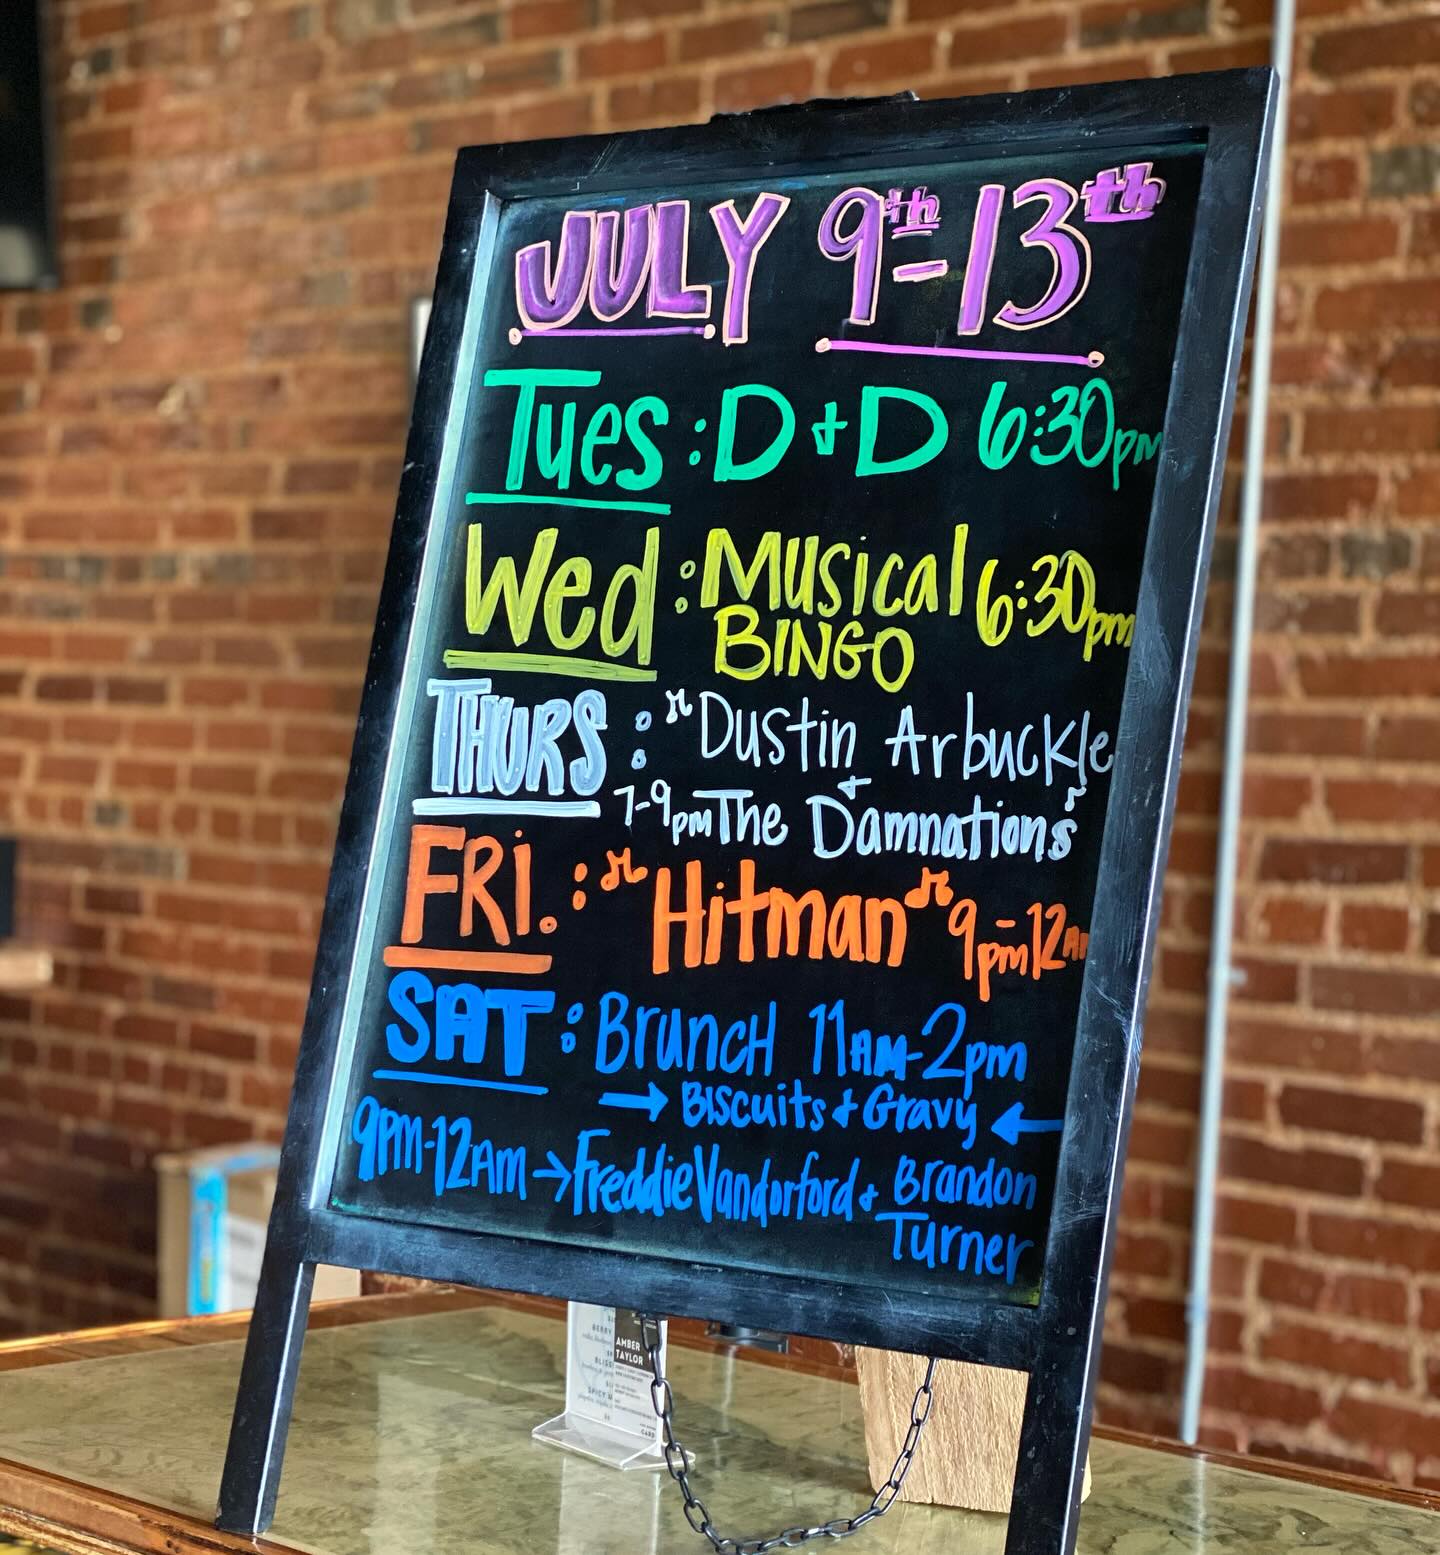 JULY 9th-13th
Tues: D+D 6:30pm
Wed: Musical 6:30pm
BINGO
THURS: Dustin Arbuckle
+
7-9pm The Damnations
FRi.: Hitman 9pm-12am
SAT: BruncH 11AM-2pm
→ Biscuits + Gravy ←
9PM-12AM → Freddie Vandorford + Brandon
Turner
AMBER
TAYLOR